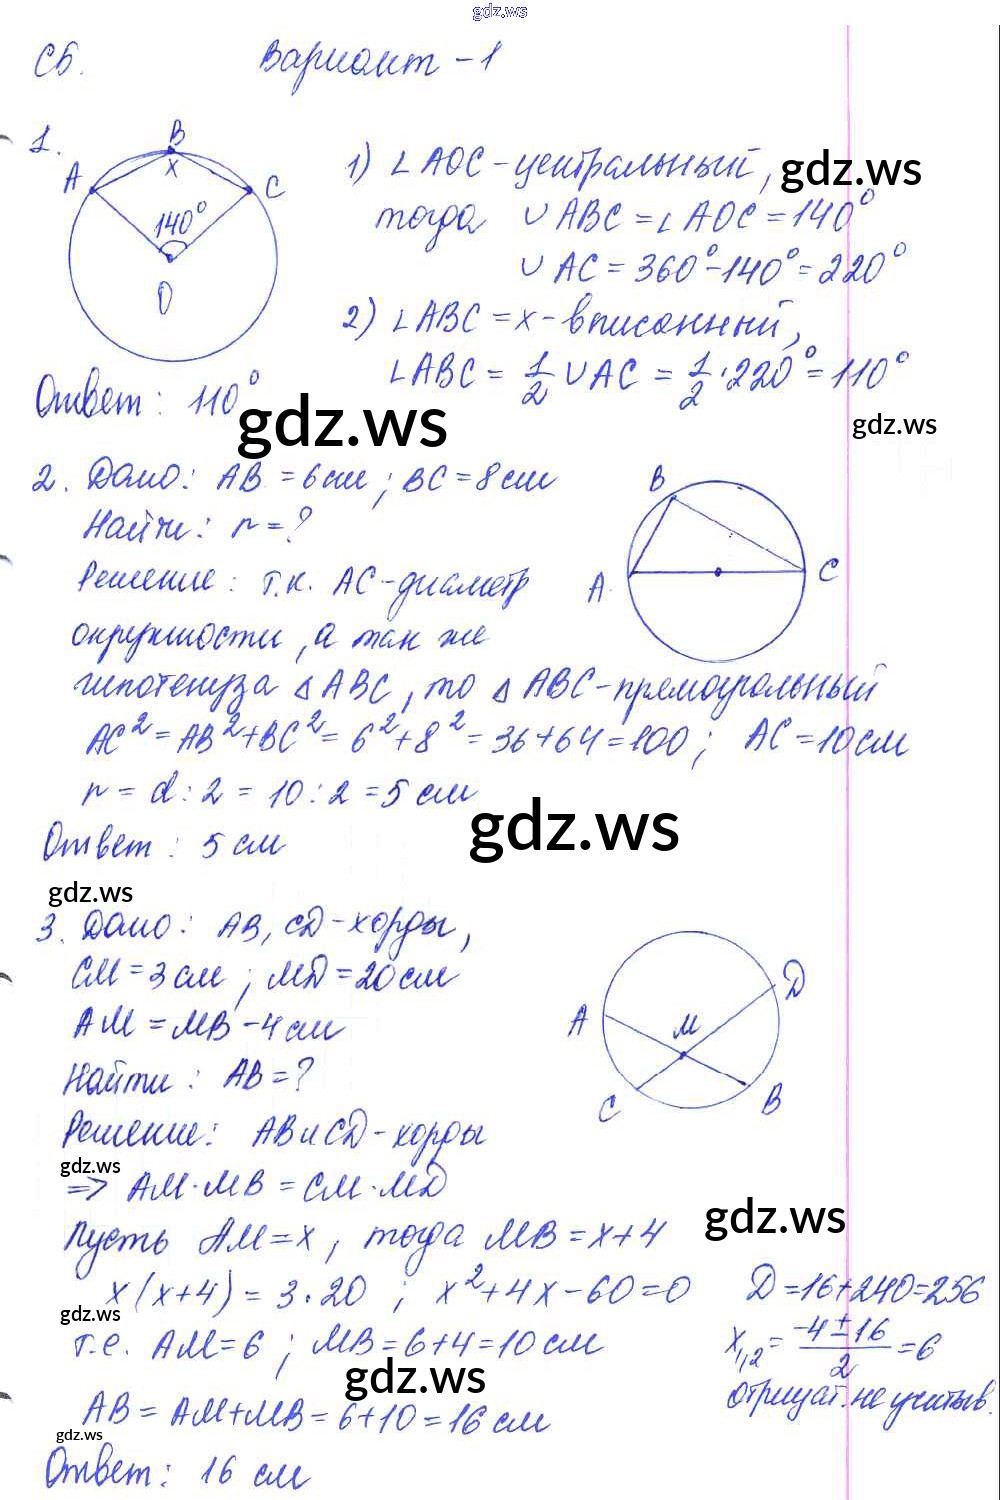 gdz.ws
С6. Вариант - 1
1.
B
A x C
140°
O
1) ∠AOC - центральный, gdz.ws
тогда ∪ABC = ∠AOC = 140°
∪AC = 360° - 140° = 220°
2) ∠ABC = x - вписанный,
∠ABC = 1/2 ∪AC = 1/2 · 220° = 110°
Ответ: 110°
gdz.ws
gdz.ws
2. Дано: AB = 6см; BC = 8см
Найти: r = ?
Решение: т.к. AC - диаметр
окружности, а так же
гипотенуза △ABC, то △ABC - прямоугольный
AC² = AB² + BC² = 6² + 8² = 36 + 64 = 100; AC = 10см
r = d : 2 = 10 : 2 = 5 см
Ответ: 5 см
B
A C
gdz.ws
gdz.ws
3. Дано: AB, CD - хорды,
CM = 3см; MD = 20см
AM = MB - 4см
Найти: AB = ?
D
A M
C B
Решение: AB и CD - хорды
gdz.ws
=> AM · MB = CM · MD
gdz.ws
Пусть AM = x, тогда MB = x + 4
x(x + 4) = 3 · 20; x² + 4x - 60 = 0 D = 16 + 240 = 256
gdz.ws
т.е. AM = 6; MB = 6 + 4 = 10 см x₁,₂ = (-4 ± 16)/2 = 6
gdz.ws
отрицат. не учитыв.
AB = AM + MB = 6 + 10 = 16 см
gdz.ws
Ответ: 16 см